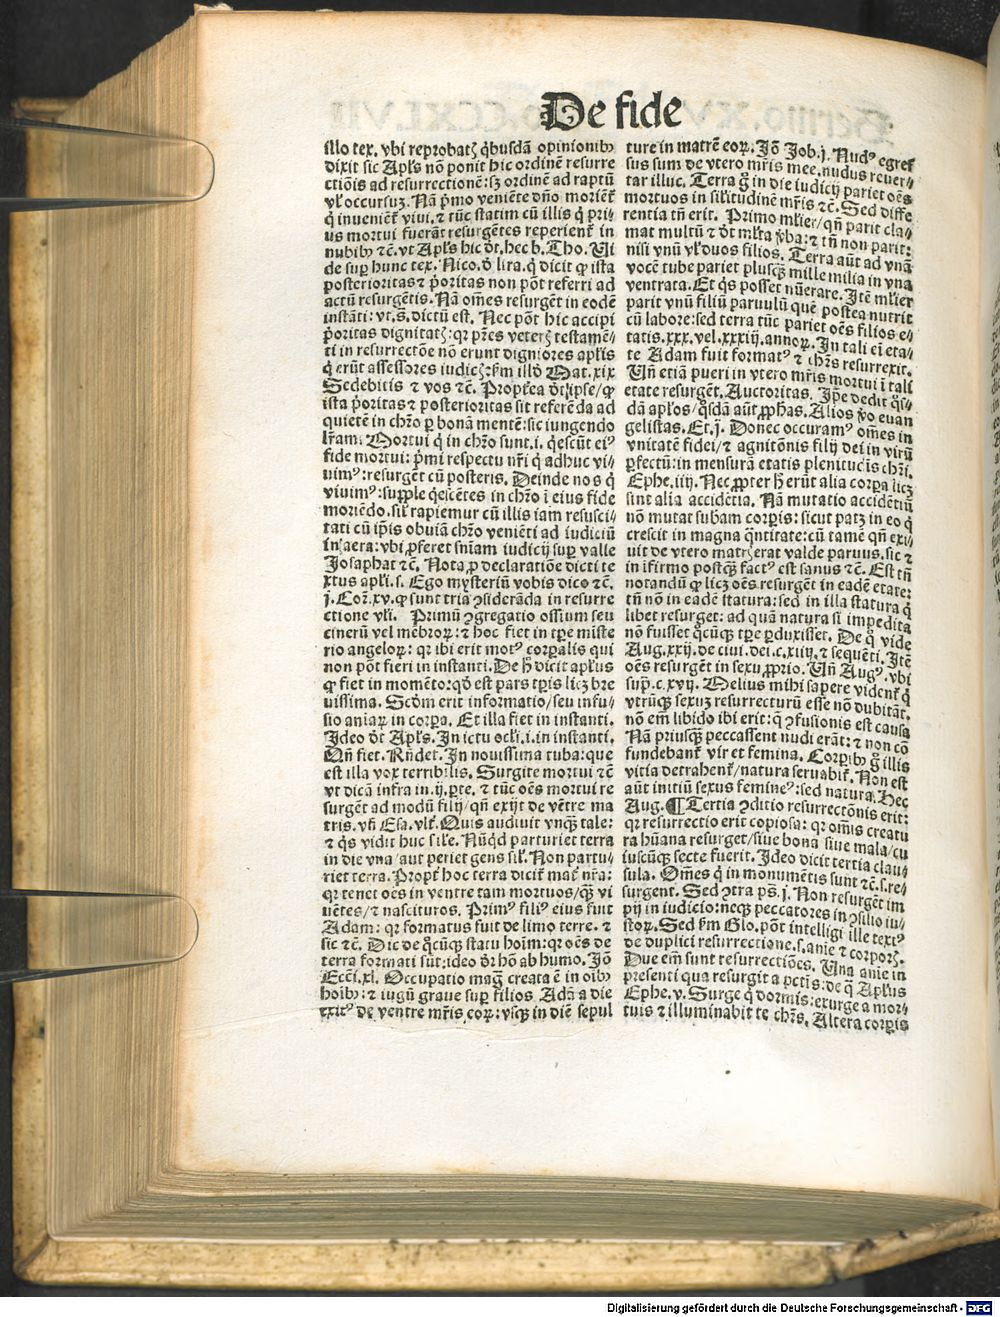 De fide
illo tex. vbi reprobatꝫ q̇busdā opinionibꝰ
dixit sic Apl's nō ponit hic ordinē resurre
ctiōis ad resurrectionē: sꝫ ordinē ad raptū
vl' occursuꝫ. Nā p̄mo veniēte dn̄o morient̄
q̇ inuenient̄ viui, ⁊ tūc statim cū illis q̇ pri⸗
us mortui fuerāt resurgētes reperient̄ in
nubibꝰ ⁊c̄. vt Apl's hic dt̄. hec b. Tho. Vi
de sup̱ hunc tex. Nico. ð lira. q̇ dicit ꝙ ista
posterioritas ⁊ p̄oritas non pōt referri ad
actū resurgētis. Nā om̄es resurgēt in eodē
instāti: vt. s̄. dictū est. Nec pōt hic accipi
p̄oritas dignitatꝫ: qꝛ pr̄es veterꝫ testamē⸗
ti in resurrectōe nō erunt digniores apl'is
q̇ erūt assessores iudicꝫ: km̄ illð Mat. xix
Sedebitis ⁊ vos ⁊c̄. Propt̄ea dt̄ ipse/ꝙ
ista p̄oritas ⁊ posterioritas sit referēda ad
quietē in chr̄o ꝑ bonā mentē: sic iungendo
lr̄am. Mortui q̇ in chr̄o sunt. i. q̇escūt eiꝰ
fide mortui: p̄mi respectu nr̄i q̇ adhuc vi⸗
uimꝰ: resurgēt cū posteris. Deinde nos q̇
viuimꝰ: supple q̇escētes in chr̄o ī eius fide
moriēdo. sil' rapiemur cū illis iam resusci⸗
tati cū ip̄is obuiā chr̄o veniēti ad iudiciū
in aera: vbi ꝓferet sniam iudicij sup̱ valle
Josaphat ⁊c̄. Nota ꝓ declaratiōe dicti te
xtus apl'i. s. Ego mysteriū vobis dico ⁊c̄.
j. Cor. xv. ꝙ sunt tria ꝯsiderāda in resurre
ctione vl'i. Primū ꝯgregatio ossium seu
cinerū vel mēbroꝝ: ⁊ hoc fiet in tp̄e miste
rio angeloꝝ: qꝛ ibi erit motꝰ corꝑalis qui
non pōt fieri in instanti. De h̄ dicit apl'us
ꝙ fiet in momēto: qð est pars tp̄is licꝫ bre
uissima. Scd̄m erit informatio/seu infu⸗
sio aniaꝝ in corꝑa. Et illa fiet in instanti.
Ideo dt̄ Apl's. In ictu ocl'i. i. in instanti.
Qn̄ fiet. Rn̄det. In nouissima tuba: que
est illa vox terribilis. Surgite mortui ⁊c̄
vt dicā infra in. ij. ꝑte. ⁊ tūc oēs mortui re
surgēt ad modū filij/qn̄ exijt de vētre ma
tris. vn̄ Esa. vlt̄. Quis audiuit vnq̄ꝫ tale:
⁊ q̇s vidit huic sil'e. Nūqd parturiet terra
in die vna/aut pariet gens sil'. Non partu⸗
riet terra. Propt̄ hoc terra dicit̄ mat̄ nr̄a:
qꝛ tenet oēs in ventre tam mortuos/q̄ꝫ vi
uētes/⁊ nascituros. Primꝰ filiꝰ eius fuit
Adam: qꝛ formatus fuit de limo terre. ⁊
sic ⁊c̄. Dic de q̇cūqꝫ statu hoīm: qꝛ oēs de
terra formati sūt: ideo dr̄ hō ab humo. Jō
Ecci. xl. Occupatio mag̃ creata ē in oībꝰ
hoībꝰ: ⁊ iugū graue sup̱ filios Adā a die
exitꝰ de ventre mr̄is eoꝝ: vsqꝫ in diē sepul
ture in matrē eoꝝ. Jō Job. j. Nudꝰ egres⸗
sus sum de vtero mr̄is mee. nudus reuer⸗
tar illuc. Terra g̊ in die iudicij pariet oēs
mortuos in sil'itudinē mr̄is ⁊c̄. Sed diffe
rentia tn̄ erit. Primo ml'ier/qn̄ parit cla⸗
mat multū ⁊ dt̄ ml'ta ꝟba: ⁊ tn̄ non parit:
nisi vnū vl' duos filios. Terra aūt ad vnā
vocē tube pariet plusq̄ꝫ mille milia in vna
ventrata. Et q̇s posset nūerare. Itē ml'ier
parit vnū filiū paruulū quē postea nutrit
cū labore: sed terra tūc pariet oēs filios e⸗
tatis. xxx. vel. xxxiij. annoꝝ. In tali ei̅ eta⸗
te Adam fuit formatꝰ ⁊ chr̄s resurrexit.
Vn̄ etiā pueri in vtero mr̄is mortui ī tali
etate resurgēt. Auctoritas. Ip̄e dedit q̇s⸗
dā apl'os/q̇sdā aūt ꝓphas. Alios ꝟo euan
gelistas. Et. j. Donec occuramꝰ om̄es in
vnitatē fidei/⁊ agnitōnis filij dei in virū
ꝑfectū: in mensurā etatis plenitudis chr̄i.
Ephe. iiij. Nec ꝓpter h̄ erūt alia corꝑa licꝫ
sint alia accidētia. Nā mutatio accidētiū
nō mutat subam corꝑis: sicut patꝫ in eo q̇
crescit in magna q̇ntitate: cū tamē qn̄ exi⸗
uit de vtero matrꝫ erat valde paruus. sic ⁊
in īfirmo postq̄ꝫ factꝰ est sanus ⁊c̄. Est tn̄
notandū ꝙ licꝫ oēs resurgēt in eadē etate:
tn̄ nō in eadē statura: sed in illa statura q̇
libet resurget: ad quā natura si impedita
nō fuisset q̇cūqꝫ tp̄e ꝑduxisset. De q̊ vide
Aug. xxij. de ciui. dei. c. xiiij. ⁊ sequēti. Itē
oēs resurgēt in sexu ꝓprio. Vn̄ Augꝰ. vbi
sup̄. c. xvij. Melius mihi sapere vident̄ q̇
vtrūqꝫ sexuꝫ resurrecturū esse nō dubitāt.
nō em̄ libido ibi erit: q̄ ꝯfusionis est causa
Nā priusq̄ꝫ peccassent nudi erāt: ⁊ non cō
fundebant̄ vir et femina. Corꝑibꝰ g̊ illis
vitia detrahent̄/natura seruabit̄. Non est
aūt initiū sexus femineꝰ: sed natura. Hec
Aug. ¶ Tertia ꝯditio resurrectōnis erit:
qꝛ resurrectio erit copiosa: qꝛ om̄is creatu
ra hūana resurget/siue bona siue mala/cu
iuscūqꝫ secte fuerit. Ideo dicit tertia clau⸗
sula. Om̄es q̇ in monumētis sunt ⁊c̄. s. re⸗
surgent. Sed ꝯtra ps̄. j. Non resurgēt im
pij in iudicio: neqꝫ peccatores in ꝯsilio iu⸗
stoꝝ. Sed km̄ Glo. pōt intelligi ille textꝰ
de duplici resurrectione. s. anie ⁊ corporꝫ.
Due em̄ sunt resurrectiōes. Una anie in
presenti qua resurgit a pctis: de q̄ Apl'us
Ephe. v. Surge q̇ dormis: exurge a mor⸗
tuis ⁊ illuminabit te chr̄s. Altera corꝑis
Digitalisierung gefördert durch die Deutsche Forschungsgemeinschaft - DFG